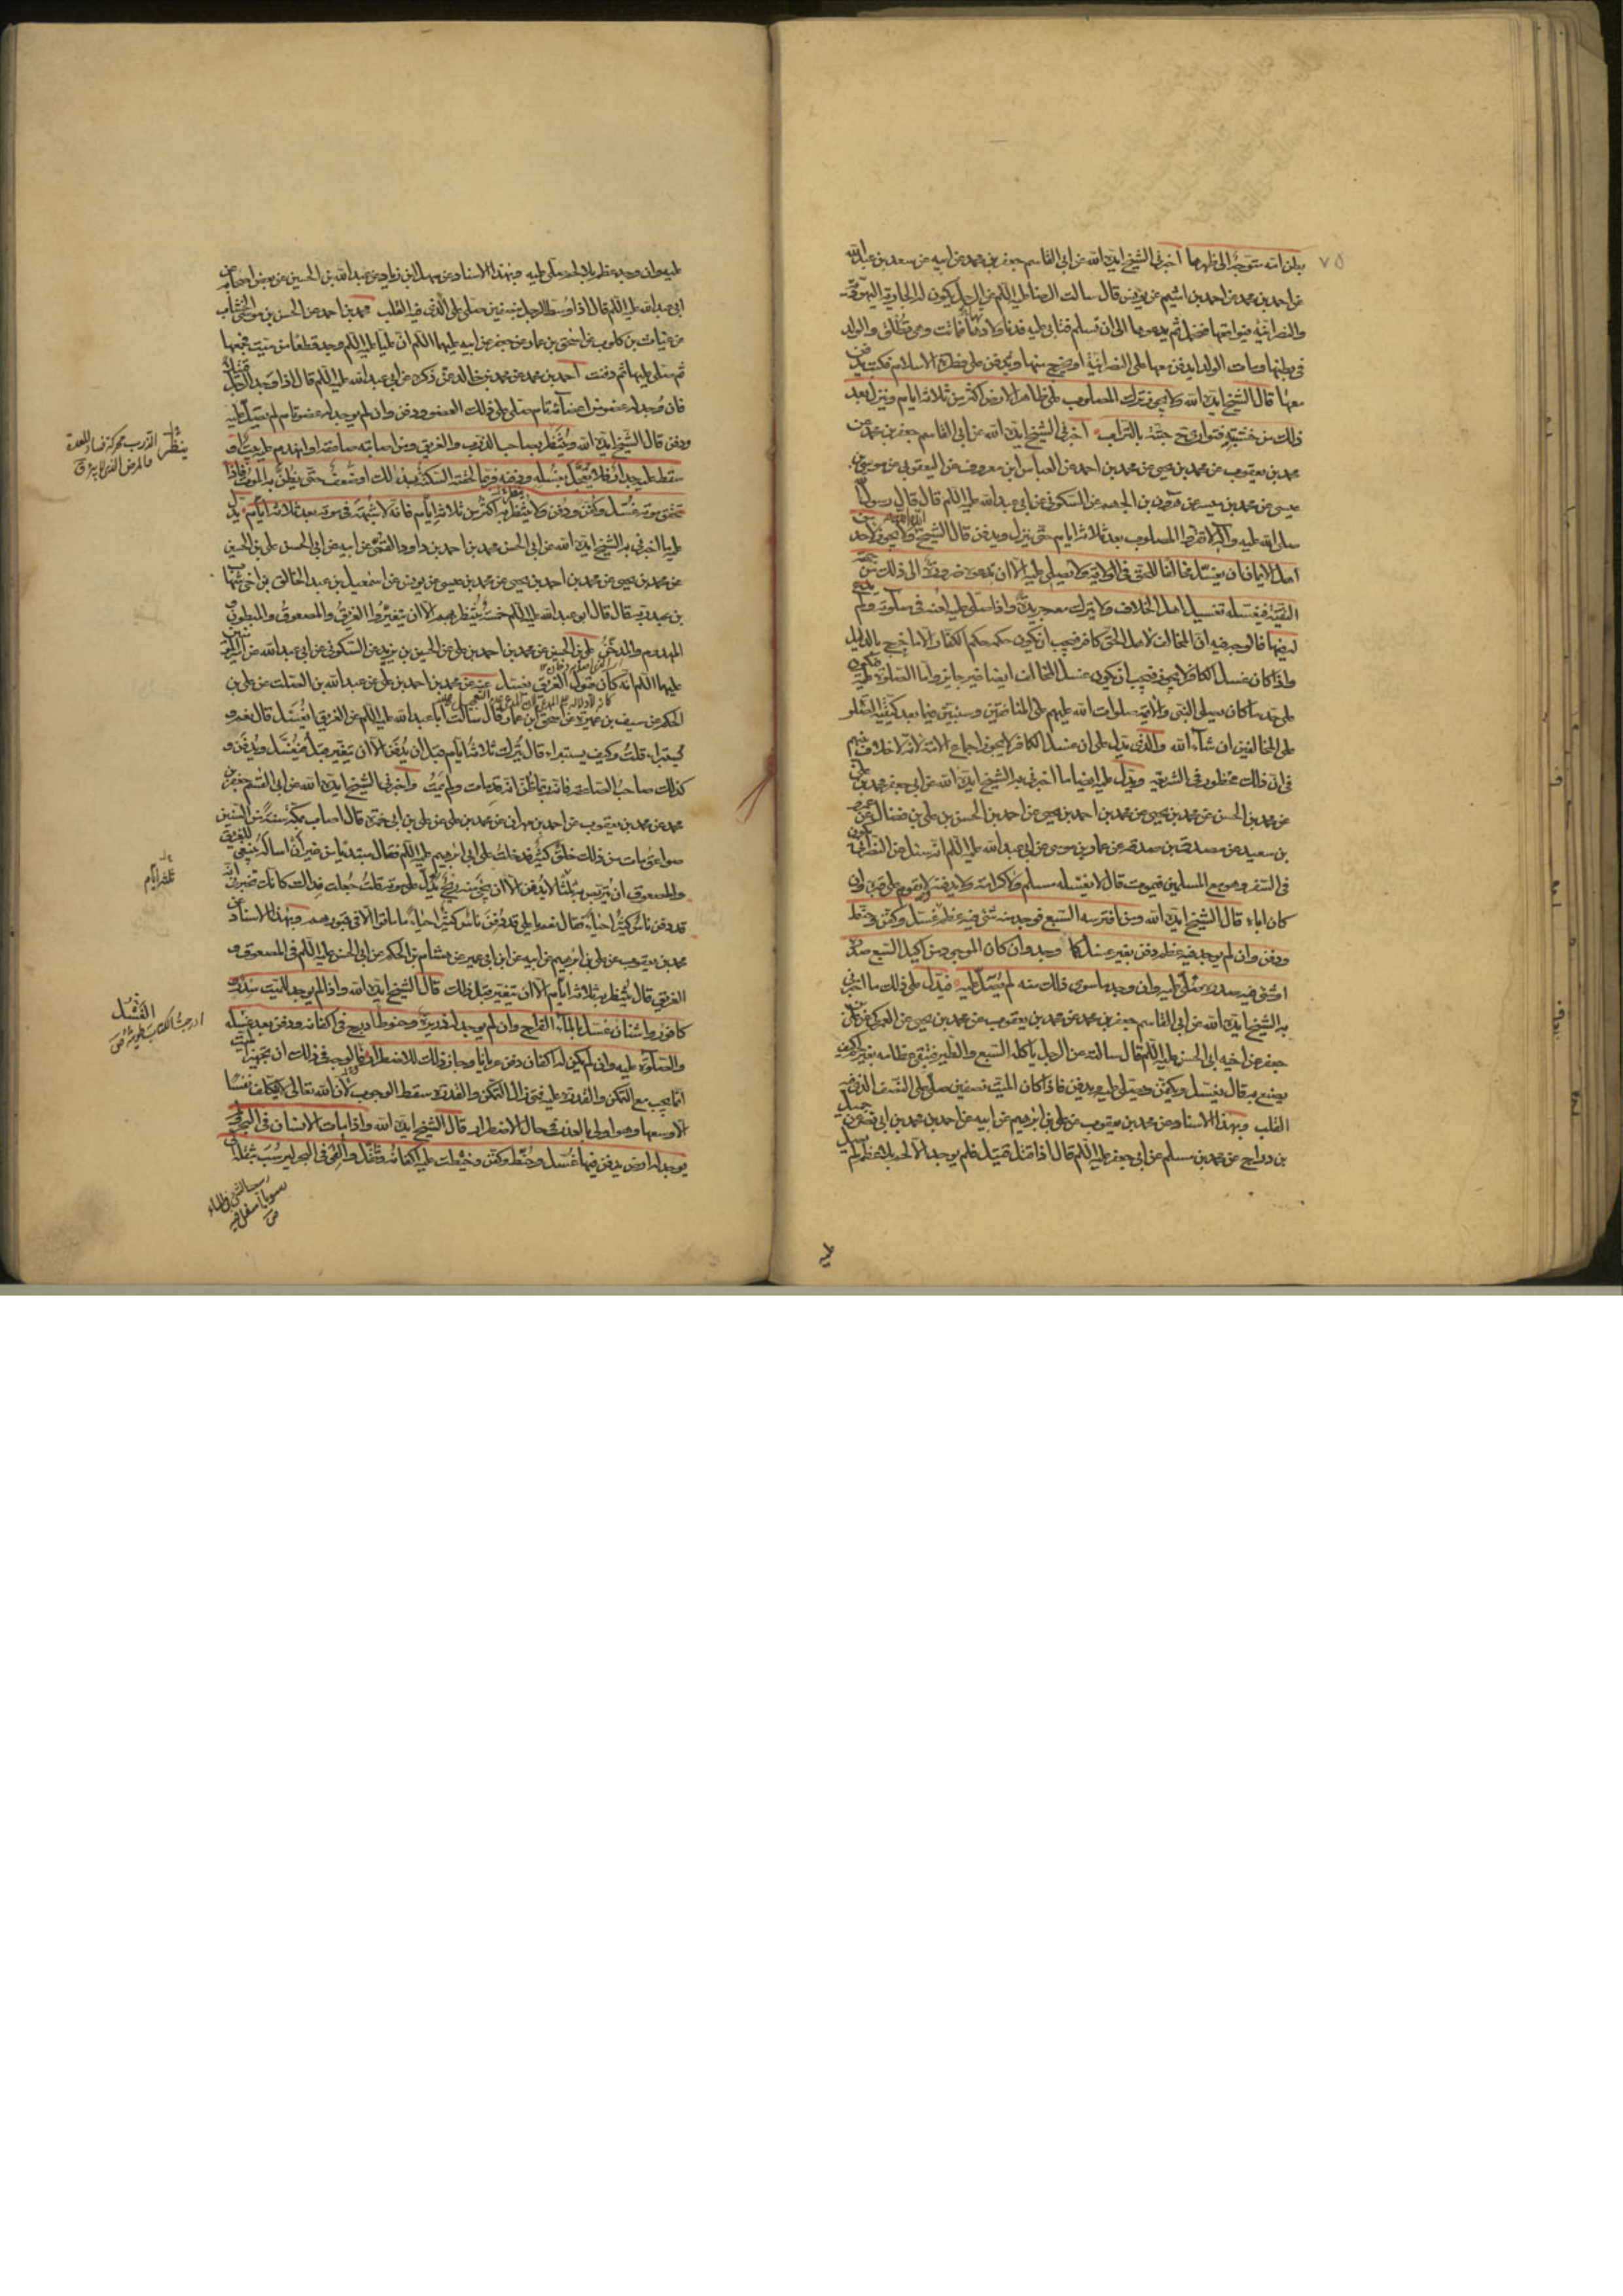 ٧٥
بطن امه متوجه الى ظهرها اخبرني الشيخ ايده الله عن ابي القاسم جعفر بن محمد عن ابيه عن سعد بن عبد الله
عن احمد بن محمد عن احمد بن اشيم عن يونس قال سالت الرضا عليه السلم عن الرجل يكون له الجارية اليهودية
والنصرانية فيواقعها فتحمل ثم يدعوها الى ان تسلم فتابى عليه فدنا ولادتها فماتت وهي تطلق والولد
في بطنها ومات الولد ايدفن معها على النصرانية او يخرج منها ويدفن على فطرة الاسلام فكتب يدفن
معها قال الشيخ ايده الله ولا يجوز ترك المصلوب على ظاهر الارض اكثر من ثلاثة ايام وينزل بعد
ذلك من خشبته فتوارى جثته بالتراب اخبرني الشيخ ايده الله عن ابي القاسم جعفر بن محمد عن
محمد بن يعقوب عن محمد بن يحيى عن محمد بن احمد عن العباس بن معروف عن اليعقوبي عن موسى بن
عيسى عن محمد بن ميسر عن هرون بن الجهم عن السكوني عن ابي عبد الله عليه السلم قال قال رسول الله
صلى الله عليه وآله لا تقروا المصلوب بعد ثلاثة ايام حتى ينزل ويدفن قال الشيخ ايده الله ولا يجوز لاحد من
اهل الايمان ان يغسل مخالفا للحق في الولاية ولا يصلي عليه الا ان تدعوه ضرورة الى ذلك من جهة
التقية فيغسله تغسيل اهل الخلاف ولا يترك معه جريدة واذا صلى عليه لعنه في صلوته ولم يدع
له فيها فالوجه فيه ان المخالف لاهل الحق كافر فيجب ان يكون حكمه حكم الكفار الا ما خرج بالدليل
واذا كان غسل الكافر لا يجوز فيجب ان يكون غسل المخالف ايضا غير جايز واما الصلوة عليه فيكون
على حد ما كان يصلي النبي والائمة صلوات الله عليهم على المنافقين وسنبين فيما بعد كيفية الصلوة
على المخالفين ان شاء الله والذي يدل على ان غسل الكافر لا يجوز اجماع الامة لانه لا خلاف بينهم
في ان ذلك محظور في الشريعة ويدل عليه ايضا ما اخبرني به الشيخ ايده الله عن ابي جعفر محمد بن علي
عن محمد بن الحسن عن محمد بن يحيى عن محمد بن احمد بن يحيى عن احمد بن الحسن بن علي بن فضال عن عمرو
بن سعيد عن مصدق بن صدقة عن عمار بن موسى عن ابي عبد الله عليه السلم انه سئل عن النصراني يكون
في السفر وهو مع المسلمين فيموت قال لا يغسله مسلم ولا كرامة ولا يدفنه ولا يقوم على قبره وان
كان اباه قال الشيخ ايده الله ومن افترسه السبع فوجد منه شيء فيه عظم غسل وكفن وحنط
ودفن وان لم يوجد فيه عظم دفن بغير غسل كما وجد وان كان الموجود من اكيل السبع صدره
او شيء فيه صدره صلى عليه وان وجد ما سوى ذلك منه لم يصل عليه فيدل على ذلك ما اخبرني
به الشيخ ايده الله عن ابي القاسم جعفر بن محمد عن محمد بن يعقوب عن محمد بن يحيى عن العمركي عن علي بن
جعفر عن اخيه ابي الحسن عليه السلم قال سالته عن الرجل ياكله السبع والطير فتبقى عظامه بغير لحم كيف
يصنع به قال يغسل ويكفن ويصلى عليه ويدفن فاذا كان الميت نصفين صلى على النصف الذي فيه
القلب وبهذا الاسناد عن محمد بن يعقوب عن علي بن ابرهيم عن ابيه عن احمد بن محمد بن ابي نصر عن جميل
بن دراج عن محمد بن مسلم عن ابي جعفر عليه السلم قال اذا قتل قتيل فلم يوجد الا لحم بلا عظم لم يصل
عليه
عليه وان وجد عظم بلا لحم صلى عليه وبهذا الاسناد عن سهل بن زياد عن عبد الله بن الحسين عن بعض اصحابه عن
ابي عبد الله عليه السلم قال اذا وسط الرجل نصفين صلى على الذي فيه القلب محمد بن احمد عن الحسن بن موسى الخشاب
عن غياث بن كلوب عن اسحق بن عمار عن جعفر عن ابيه عليهما السلم ان عليا عليه السلم وجد قطعا من ميت فجمعها
ثم صلى عليها ثم دفنت احمد بن محمد عن محمد بن خالد عمن ذكره عن ابي عبد الله عليه السلم قال اذا وجد الرجل قتيلا
فان وجد له عضو من اعضائه تام صلى على ذلك العضو ودفن وان لم يوجد له عضو تام لم يصل عليه
ودفن قال الشيخ ايده الله وينتظر بصاحب الذرب والغريق ومن اصابته صاعقة او انهدم عليه بيت او
سقط عليه جدار فلا يعجل بغسله ودفنه فربما لحقته السكتة بذلك او ضعف حتى يظن به الموت فاذا
تحقق موته غسل وكفن ودفن ولا ينتظر به اكثر من ثلاثة ايام فانه لا شبهة في موته بعد ثلاثة ايام يدل
عليه ما اخبرني به الشيخ ايده الله عن ابي الحسن محمد بن احمد بن داود القمي عن ابيه عن ابي الحسن علي بن الحسين
عن محمد بن يحيى عن محمد بن احمد بن يحيى عن محمد بن عيسى عن يونس عن اسمعيل بن عبد الخالق بن اخي شهاب
بن عبد ربه قال قال ابو عبد الله عليه السلم خمسة ينتظر بهم الا ان يتغيروا الغريق والمصعوق والمبطون و
المهدوم والمدخن علي بن الحسين عن محمد بن احمد بن علي عن الحسين بن يزيد عن السكوني عن ابي عبد الله عن ابيه
عليهما السلم انه كان يقول الغريق يغسل عنه عن محمد بن احمد بن علي عن عبد الله بن الصلت عن علي بن
الحكم عن سيف بن عميرة عن اسحق بن عمار قال سالت ابا عبد الله عليه السلم عن الغريق ايغسل قال نعم و
يستبرء قلت وكيف يستبرء قال يترك ثلاثة ايام قبل ان يدفن الا ان يتغير قبل فيغسل ويدفن و
كذلك صاحب الصاعقة فانه ربما ظن انه قد مات ولم يمت واخبرني الشيخ ايده الله عن ابي القسم جعفر بن
محمد عن محمد بن يعقوب عن احمد بن مهران عن محمد بن علي عن علي بن ابي حمزة قال اصاب بمكة سنة من السنين
صواعق مات من ذلك خلق كثير فدخلت على ابي ابرهيم عليه السلم فقال مبتديا من غير ان اساله ينبغي للغريق
والمصعوق ان يتربص به ثلثا لا يدفن الا ان يجيء منه ريح يدل على موته قلت جعلت فداك كانك تخبرني انه
قد دفن ناس كثير احياء فقال نعم يا علي قد دفن ناس كثير احياء ما ماتوا الا في قبورهم وبهذا الاسناد عن
محمد بن يعقوب عن علي بن ابرهيم عن ابيه عن ابن ابي عمير عن هشام بن الحكم عن ابي الحسن عليه السلم في المصعوق و
الغريق قال ينتظر به ثلاثة ايام الا ان يتغير قبل ذلك قال الشيخ ايده الله واذا لم يوجد للميت سدر و
كافور واشنان غسل بالماء القراح وان لم يوجد له ذريرة وحنوط ادرج في اكفانه ودفن بعد غسله
والصلوة عليه وان لم يكن له اكفان دفن عريانا وجاز ذلك للاضطرار فالوجه في ذلك ان تجهيز الميت
انما يجب مع التمكن والقدرة عليه فمتى زال التمكن والقدرة سقط الوجوب لان الله تعالى لا يكلف نفسا
الا وسعها وهو اولى بالعذر في حال الاضطرار قال الشيخ ايده الله واذا مات الانسان في البحر ولم
يوجد له ارض يدفن فيها غسل وحنط وكفن وخيطت عليه اكفانه وثقل والقي في البحر ليرسب بثقله
ينظر
الذرب محركة فساد المعدة
والمرض الذي لا يبرء ق
ثلثة ايام